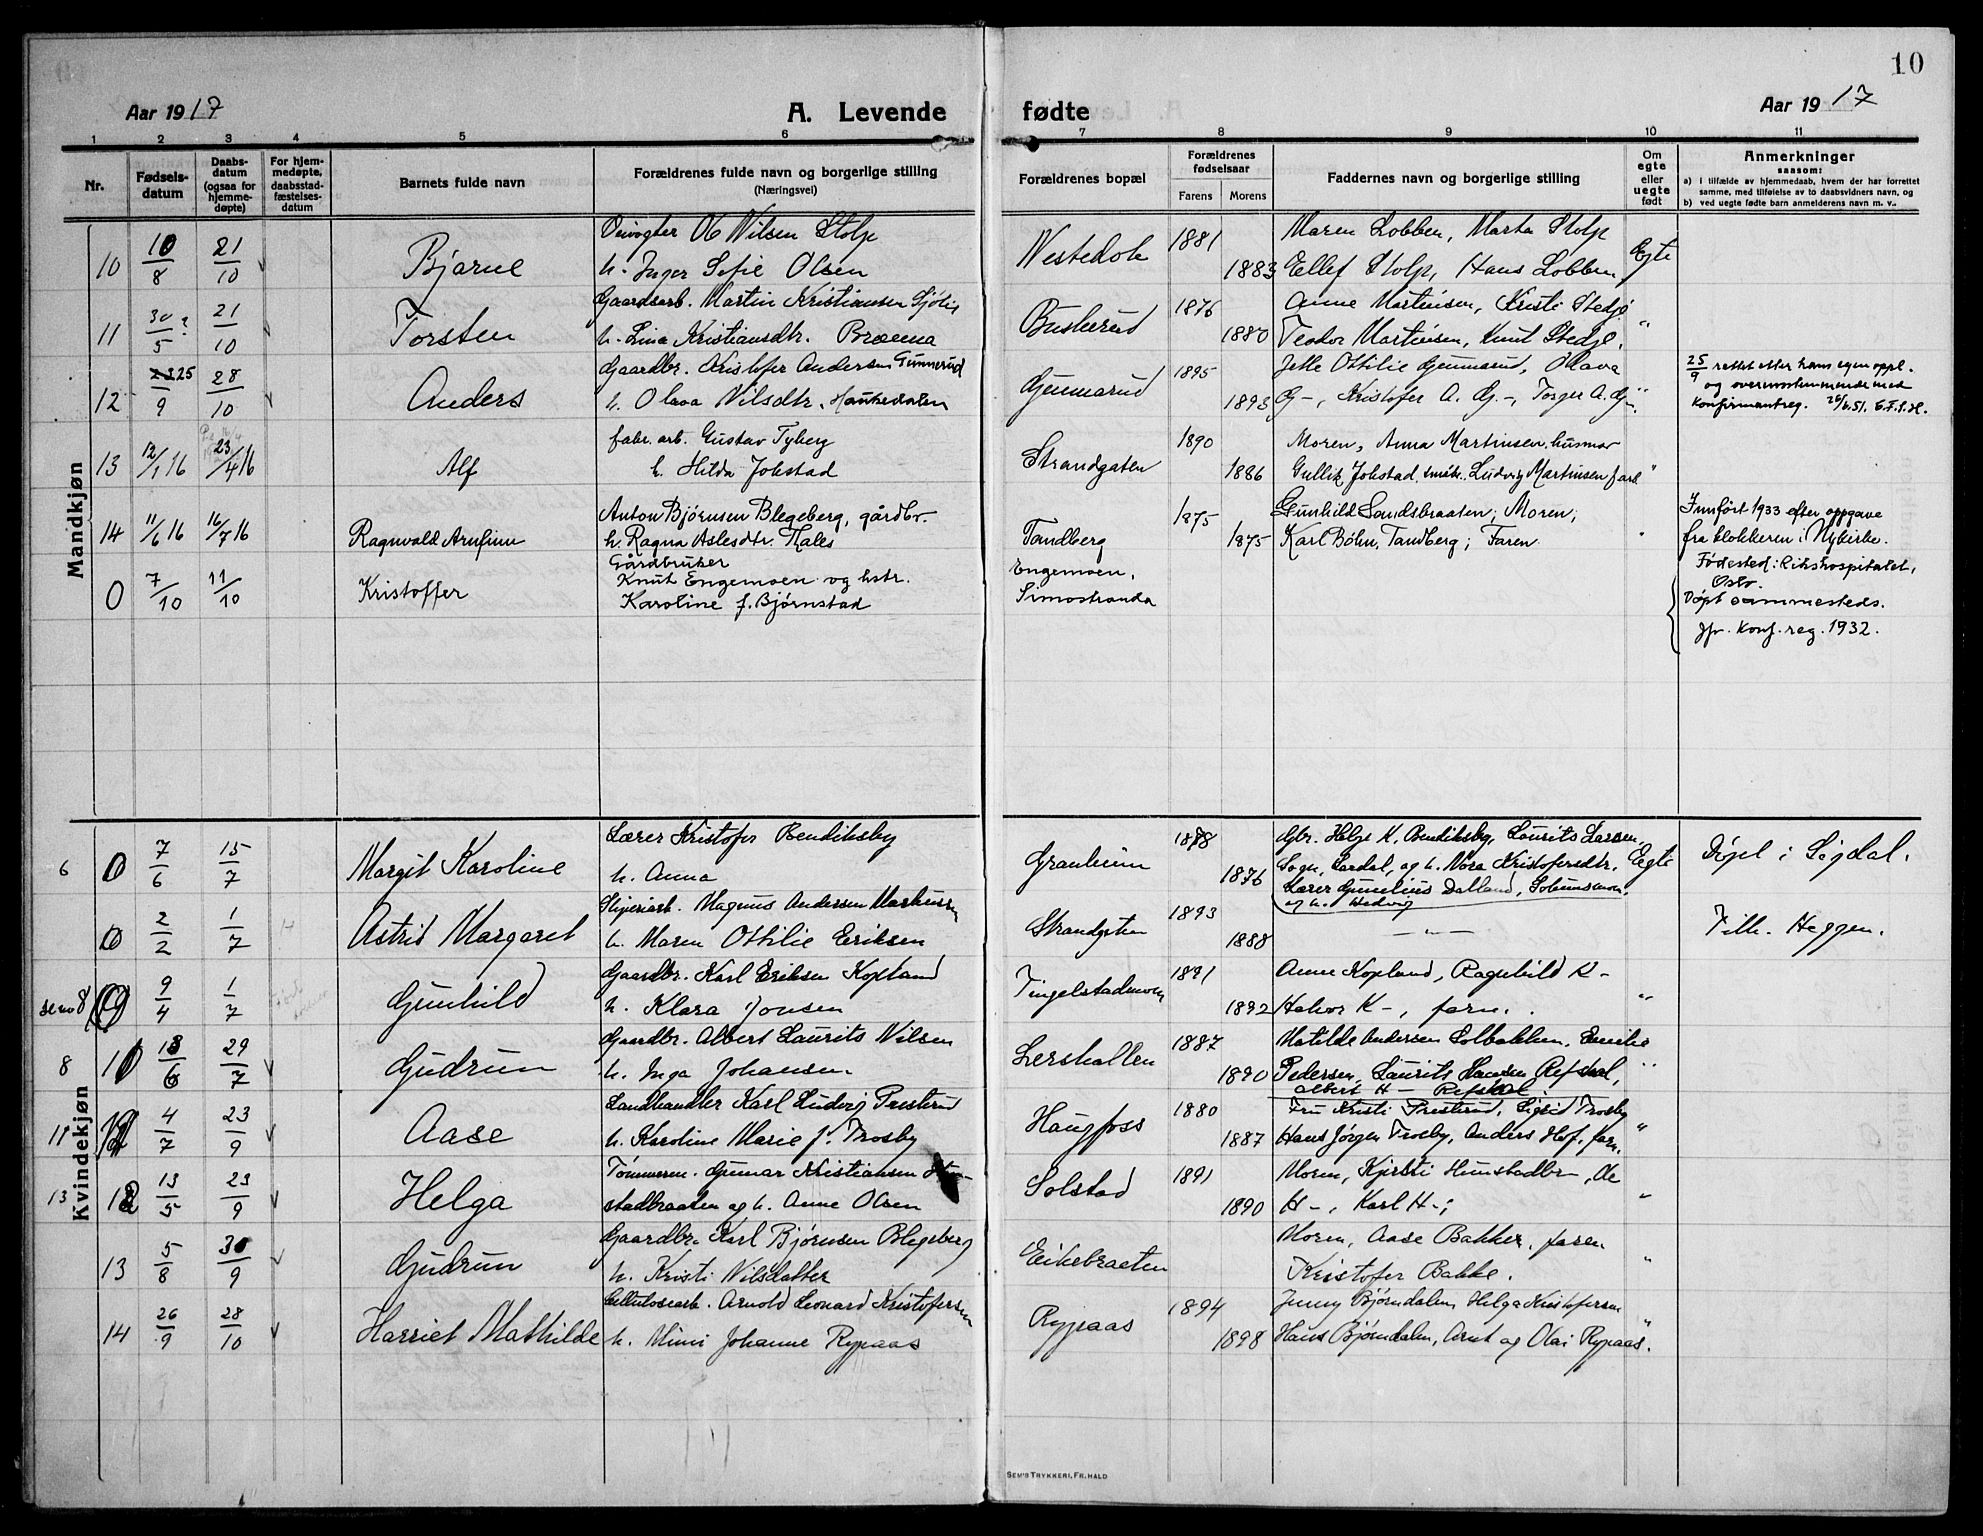 10
Aar 1917 A. Levende fødte Aar 1917
1 2 3 4 5 6 7 8 9 10 11
Nr. Fødselsdatum Daabsdatum (ogsaa for hjemmedøpte) For hjemmedøpte, daabsstadfæstelsesdatum Barnets fulde navn Forældrenes fulde navn og borgerlige stilling (Næringsvei) Forældrenes bopæl Forældrenes fødselsaar Farens Morens Faddernes navn og borgerlige stilling Om egte eller uegte født Anmerkninger saasom:
a) I tilfælde av hjemmedaab, hvem der har forrettet samme, med tilføielse av to daabsvidners navn, og
b) ved uegte fødte barn anmelderens navn m. v..
Mandkjøn
Nilsen Stolp 1881 Maren Lobben, Marta Stolp
10 10/8 21/10 Bjarne h. Inger Sofie Olsen Vestedok 1883 Ellef Stolp, Hans Lobben Egte
Gaardsarb. Martin Kristiansen 1876 Anne Martinsen, Kristi Stedje
11 30/5? 21/10 Torsten h. Lina Kristiansdtr. Bræmma Buskerud 1880 Teodor Martinsen, Knut Stedje. "
Gaardbr. Kristofer Andersen Gunnerud 1895 Jelle Ottilie Gunnarud, Olava 25/9 rettet etter hans egen oppl.
12 25/9 28/10 Anders h. Olava Nilsdtr. Haukedalen Gunnarud 1893 G-, Kristofer A. G.-, Torger A. G-. " og overensstemmende med
konfirmantreg. 26/6.51.
fabr. arb. Gustav Tyberg 1890 Moren, Anna Martinsen, husmor
13 12/1 16 23/4 16 Alf h. Hilda Jokstad Strandgaten 1886 Gullik Jokstad, Ludvig Martinsen "
Anton Bjørnsen Blegeberg, gårdbr. 1875 Gunhild Sandsbraaten; Moren; Innført 1933 efter oppgave
14 11/6 16 16/7 16 Ragnvald Arnfinn h. Ragna Aslesdtr. Hales Tandberg 1875 Karl Bøhn, Tandberg; Faren. " fra klokkeren i Nykirke.
Gårdbruker
0 7/10 11/10 Kristoffer Knut Engemoen og hstr. Engemoen, Fødested: Rikshospitalet, Oslo.
Karoline f. Bjørnstad Simostranda Døpt sammesteds.
Jfr. Konf. reg. 1932.
Kvindekjøn
Lærer Kristofer Bendiksby 1878 Gbr. Helge K. Bendiksby, Laurits Larsen
6 0 7/6 15/7 Margit Karoline h. Anna Granheim 1876 Sogn, Lardal, og h. Nora Kristofersdtr. Egte Døpt i Sigdal.
Lærer Gunelius Dalland,
og h. Hedvig
Magnus Andersen Markussen 1893
0 2/2 1/7 Astrid Margaret h. Maren Ottilie Eriksen Strandgaten 1888 — " — Filh. Heggen.
Gaardbr. Karl Eriksen Kopland 1891 Anne Kopland, Ragnhild K-
se no 8 9/4 1/7 Gunhild h. Klara Jonsen Tingelstadmoen 1892 Halvor K-, faren. "
Gaardbr. Albert Laurits Nilsen 1887 Matilde Andersen Solbakken, Emilie
8 29/7 Gudrun h. Inga Johansen Lershallen 1890 Pedersen, Laurits Hansen Refsdal, "
Albert H- Refsdal.
Landhandler Karl Ludvig Presterud 1880 Fru Kristi Presterud, Sigrid Trosby
11 4/7 23/9 Aase h. Karoline Marie f. Trosby Haugfoss 1887 Hans Jørgen Trosby, Anders Hof, faren. "
Tømmerm. Gunnar Kristiansen 1891 Moren, Kjersti
13 13/5 23/9 Helga stadbraaten og h. Anne Olsen Solstad 1890 H-, Karl H-; "
Gaardbr. Karl Bjørnsen Blegeberg Moren, Aase Bakker, faren
13 5/8 30/9 Gudrun h. Kristi Nilsdatter Eikebraaten Kristofer Bakke. "
Cellulosearb. Arnold Leonard Kristofersen 1894 Jenny Bjørndalen, Helga Kristofersen
14 26/9 28/10 Harriet Mathilde h. Mimi Johanne Rypaas Rypaas 1898 Hans Bjørndalen, Arnt og Olai Rypaas. "
SEM'S TRYKKERI, FR. HALD